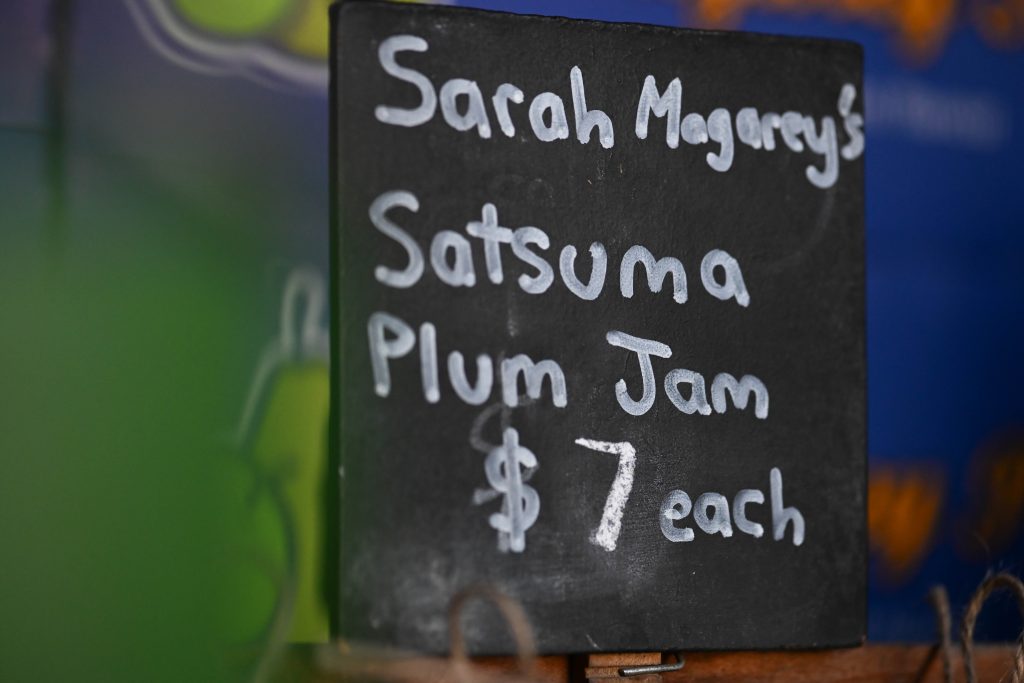 Sarah Magarey's
Satsuma
Plum Jam
$ 7 each